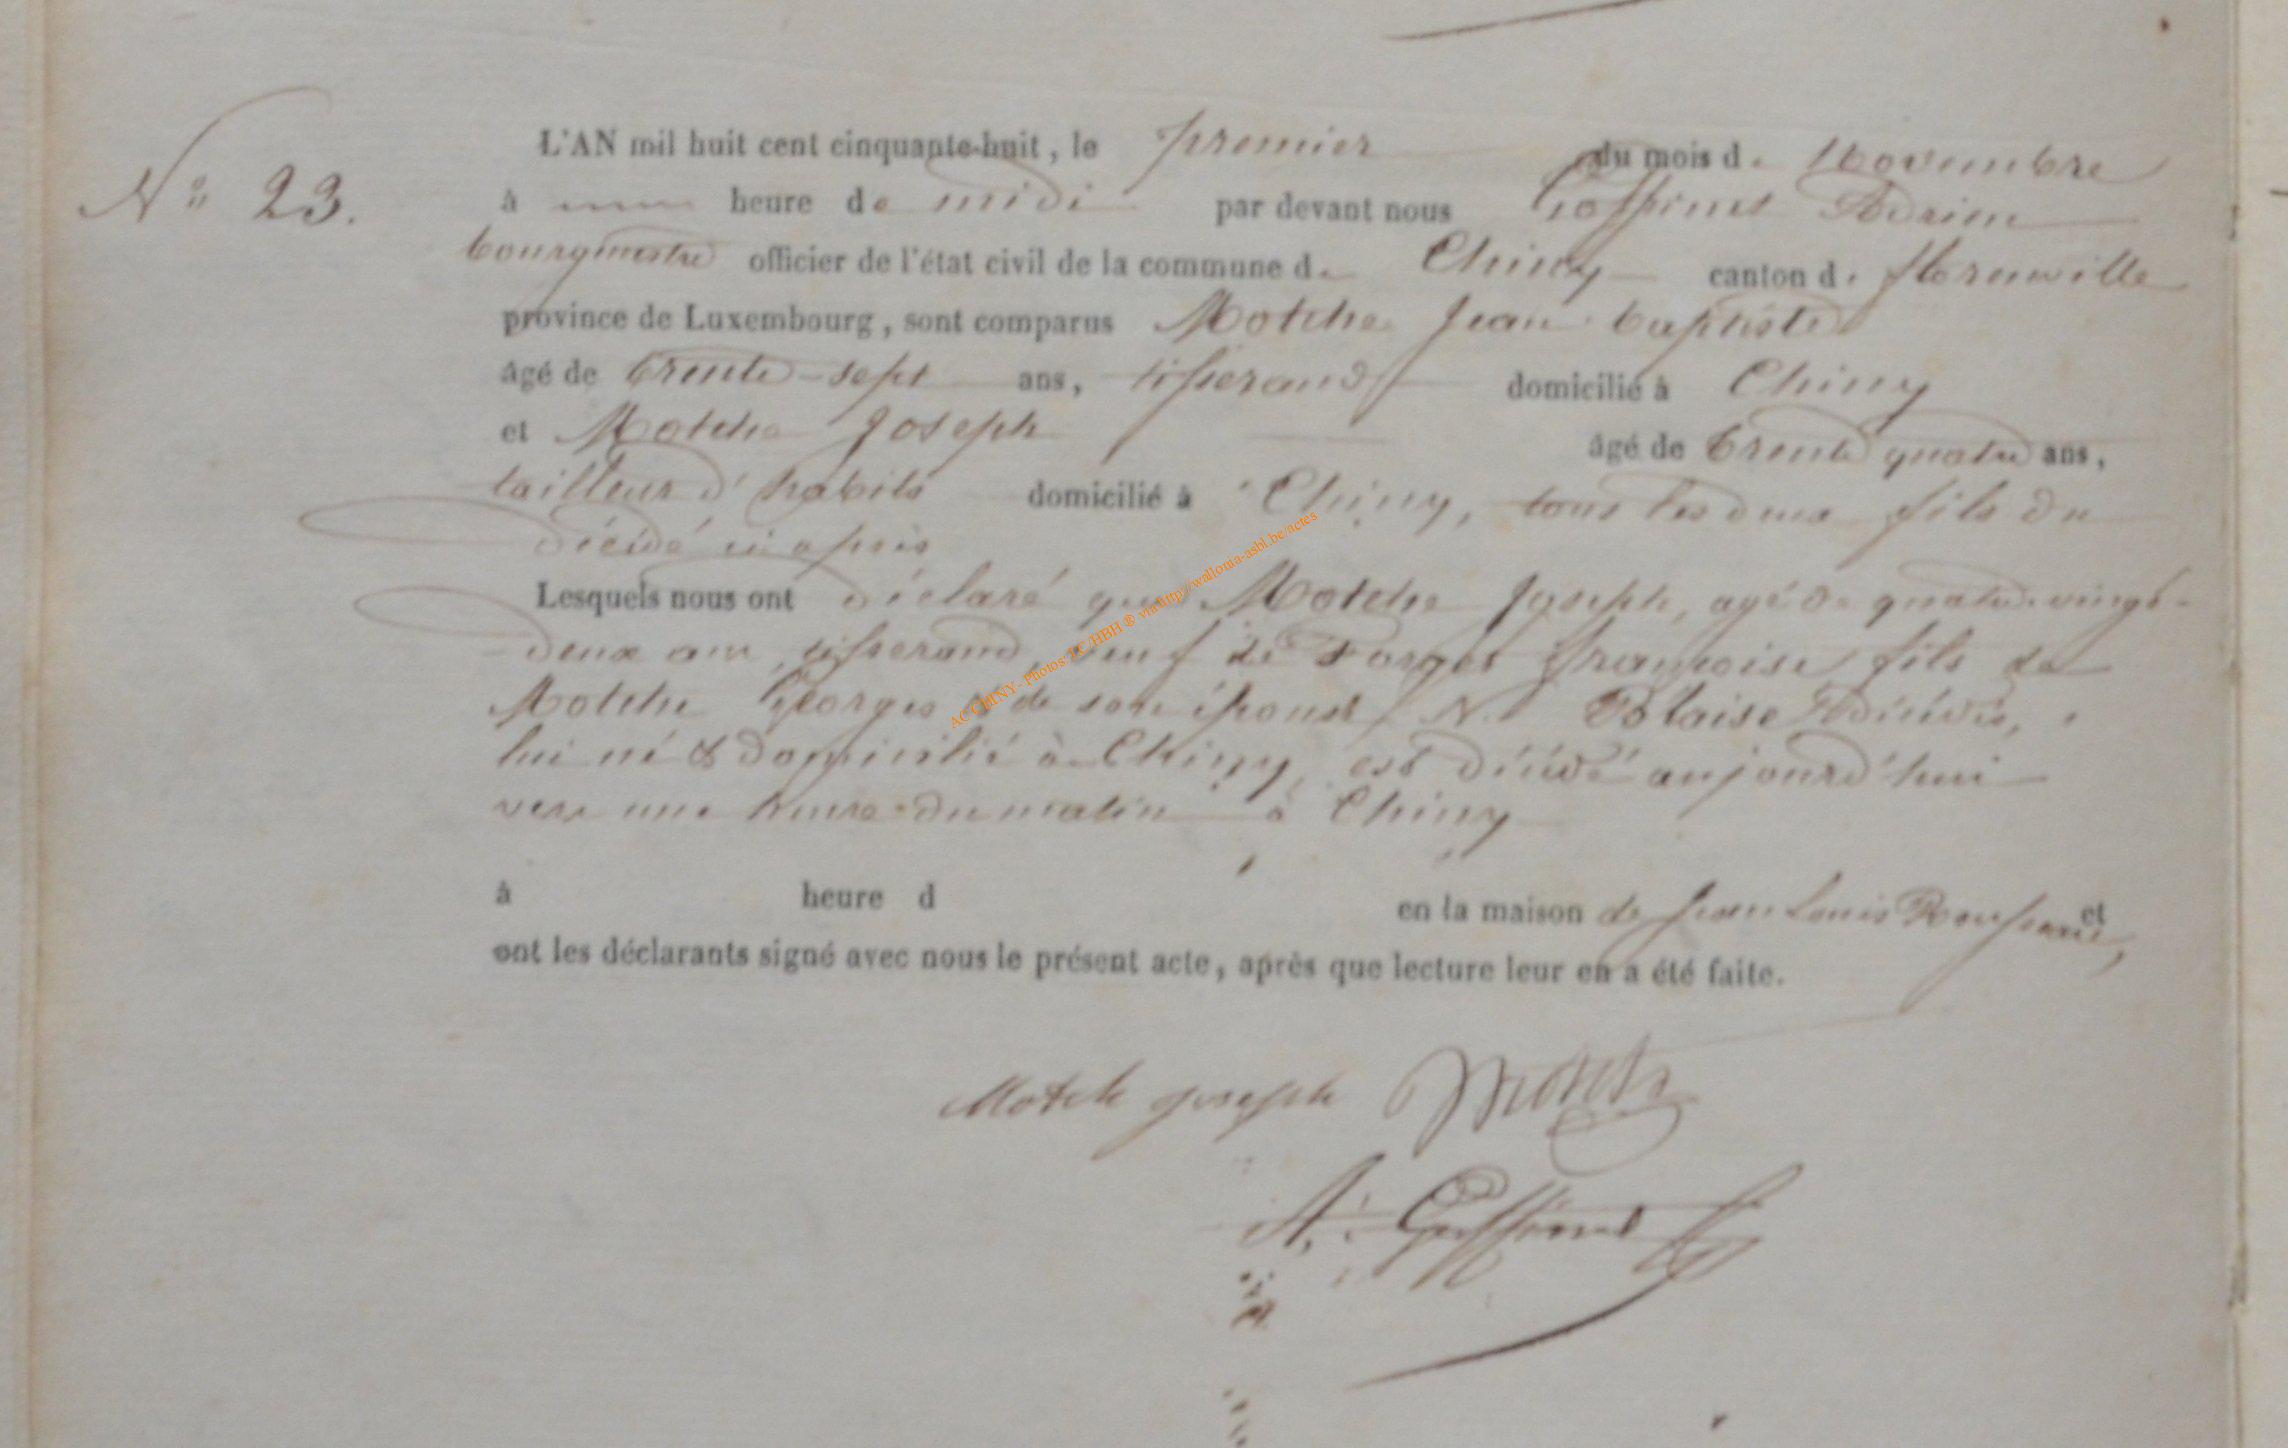 N° 23.
L'AN mil huit cent cinquante-huit, le premier du mois de Novembre
à une heure de midi par devant nous Goffinet Adrien
bourgmestre officier de l'état civil de la commune de Chiny canton de florenville
province de Luxembourg, sont comparus Motche Jean baptiste
âgé de trente-sept ans, tisserand domicilié à Chiny
et Motche Joseph âgé de trente quatre ans,
tailleur d'habits domicilié à Chiny, tous les deux fils du
décédé ci après
Lesquels nous ont déclaré que Motche Joseph, agé de quatre-vingt-
deux ans, tisserand, veuf de Forget françoise, fils de
Motche Georges & de son épouse N. Blaise décédés,
lui né & domicilié à Chiny, est décédé aujourd'hui
vers une heure du matin à Chiny
à heure d en la maison de Jean Louis et
ont les déclarants signé avec nous le présent acte, après que lecture leur en a été faite.
Motch joseph Motch
A. Goffinet
AC CHINY - Photos TC/HBH ® via http://wallonia-asbl.be/actes